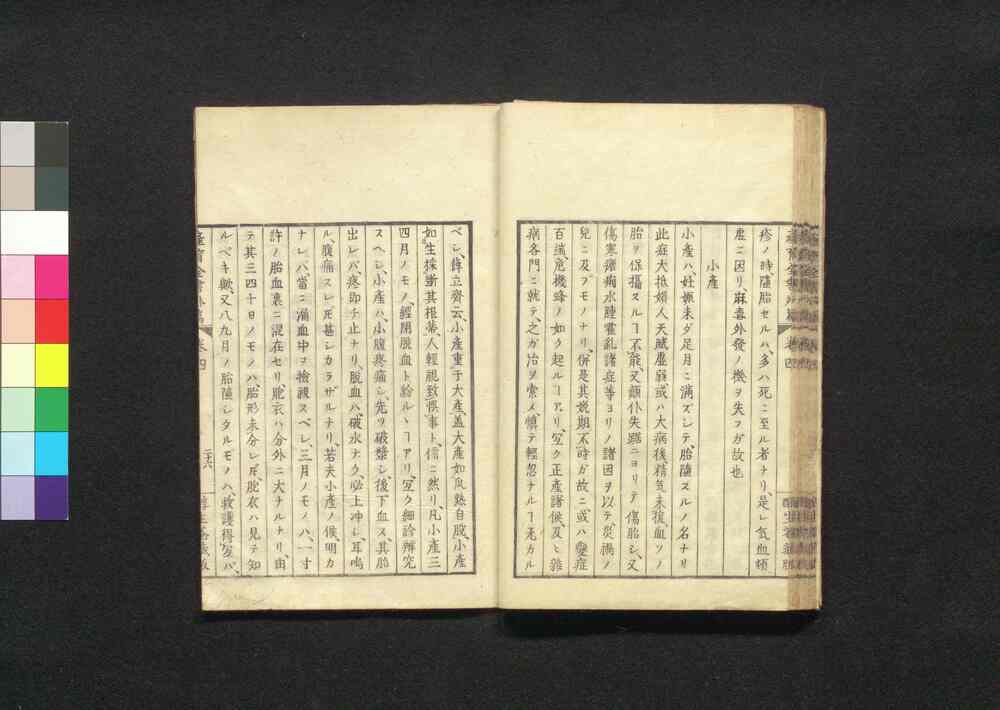 疹ノ時墮胎セルハ多ハ死ニ至ル者ナリ、是レ気血頓
虚ニ因リ、麻毒外發ノ機ヲ失フガ故也
小產
小產ハ、妊娠未ダ足月ニ満ズシテ、胎墮スルノ名ナリ
此症大抵婦人天賦虚弱或ハ大病後精気未復、血ソノ
胎ヲ保攝スルヿ不能、又顛仆失跌ニヨリテ傷胎シ、又
傷寒瘧痢水腫霍亂諸症等ヨリノ諸因ヲ以テ災禍ノ
兒ニ及ブモノナリ、併是其娩期不時ガ故ニ、或ハ變症
百端、危機蜂ノ如ク起ルヿアリ、宜ク正產諸候及ヒ雜
病各門ニ就テ、之ガ治ヲ索メ、慎テ輕忽ナルヿ无カル
ベシ、薛立齋云、小產重于大產、蓋大產如瓜熟自脫、小產
如生採斷其根蒂、人輕視致悞事ト、信ニ然リ、凡小產三
四月ノモノ、經閉脱血ト紛ルヽヿアリ、宜ク細診辨究
スヘシ、小產ハ、小腹疼痛シ、先ツ破漿シ後下血ス、其胎
出レバ、疼即チ止ナリ、脱血ハ、破水ナク、必上冲シ耳鳴
ル、腹痛スレ𪜈甚シカラザルナリ、若夫小產ノ候、明カ
ナレバ、當ニ漏血中ヲ撿視スベシ、三月ノモノハ、一寸
許ノ胎血裹ニ混在セリ、胞衣ハ分外ニ大ナルナリ、由
テ其三四十日ノモノハ、胎形未分レ𪜈、胞衣ハ見テ知
ルベキ歟、又八九月ノ胎墮シタルモノハ、救護得宜バ、
產育全書外篇 卷四 二十六